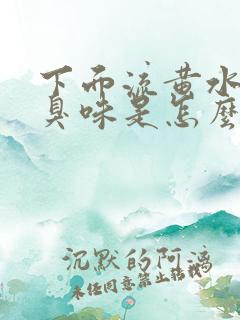 下面流黄水
臭味是怎麽
沉默的阿漓
未经同意禁止转载